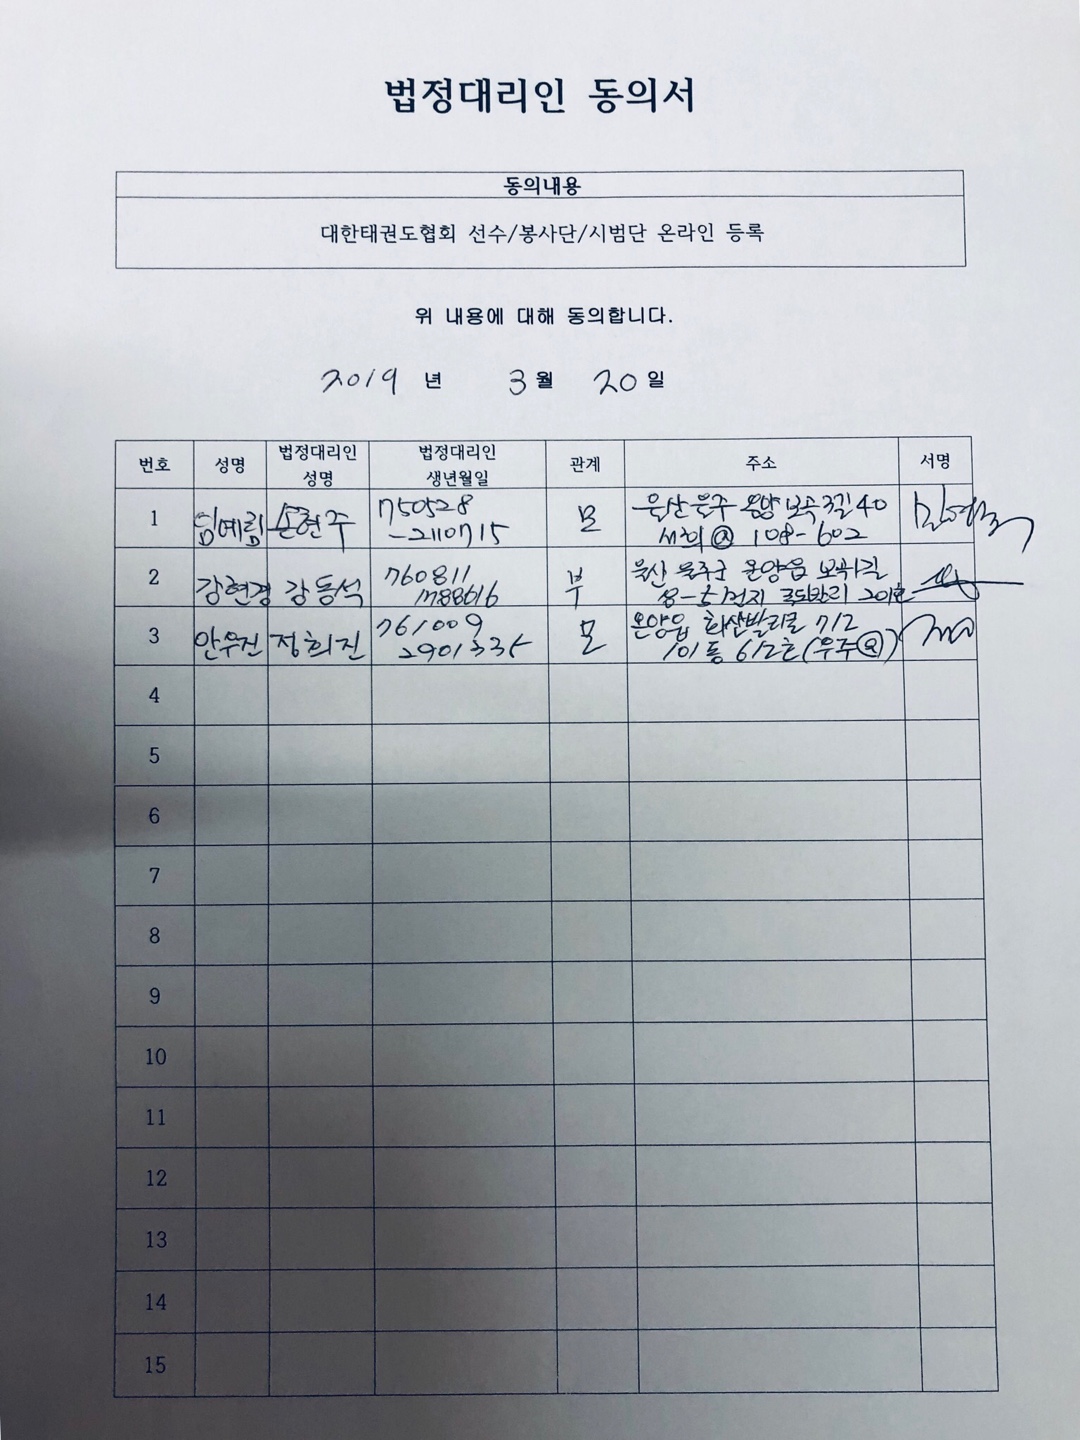 법정대리인 동의서
동의내용
대한태권도협회 선수/봉사단/시범단 온라인 등록
위 내용에 대해 동의합니다.
2019 년 3월 20일
번호 성명 법정대리인 성명 법정대리인 생년월일 관계 주소 서명
1 임예림 손현주 750528 모 울산 울주 온양 보곡3길 40
-2110715 108-602
2 강현경 강동석 760811 부 울산 울주군 온양읍
1788616 201호
3 안우진 정희진 761009 모 온양읍 712
2901335 101동 612호
4
5
6
7
8
9
10
11
12
13
14
15